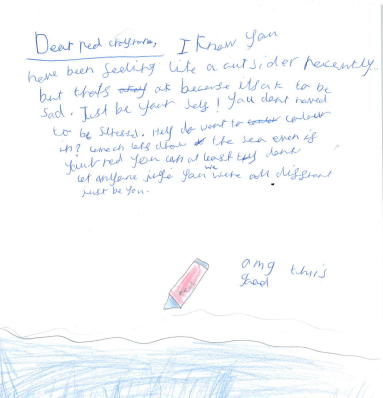 Dear red crayon, I know you
have been feeling like a outsider recently
but thats ok because its ok to be
sad. Just be your self! You dont need
to be stressed. Hey do want to colour
in? lets draw the sea even if
your red you can at least try dont
let anyone juge you we were all different
just be you.
omg this